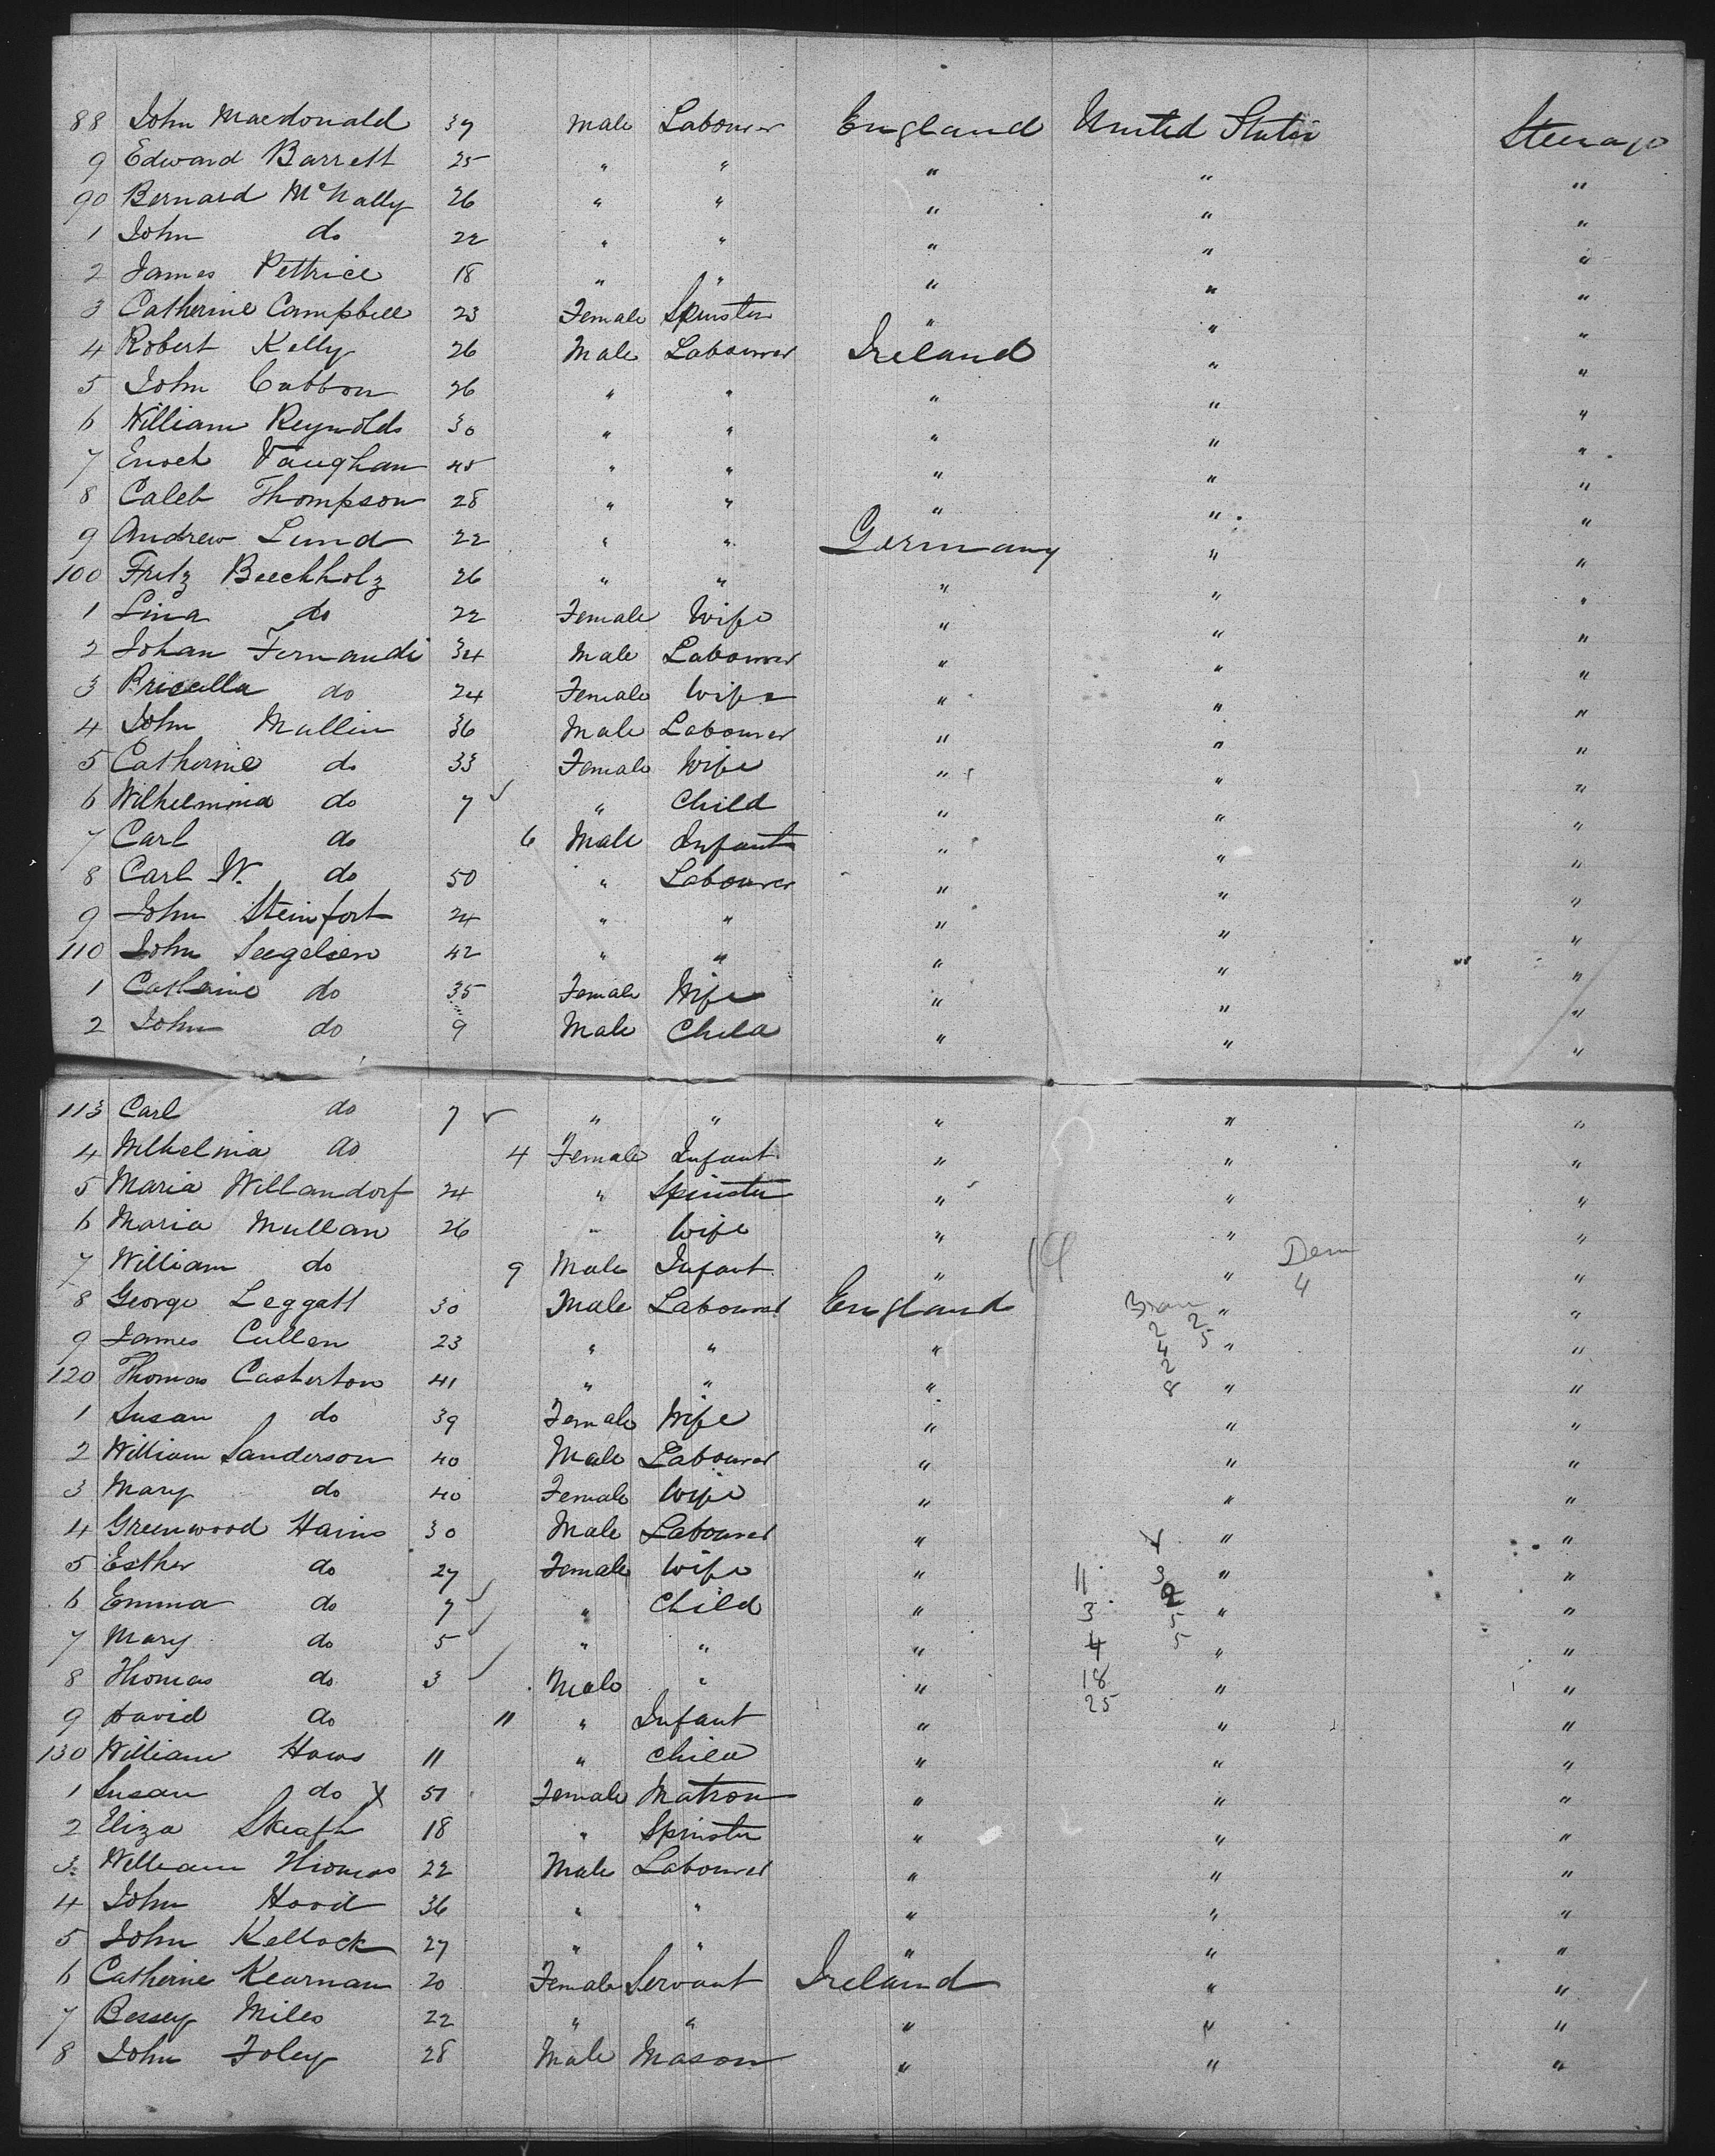 88 John Macdonald 39 Male Labourer England United States Steerage
9 Edward Barrett 25 " " " " "
90 Bernard McNally 26 " " " " "
1 John do 22 " " " " "
2 James Pettrice 18 " " " " "
3 Catherine Campbell 23 Female Spinster " " "
4 Robert Kelly 26 Male Labourer Ireland " "
5 John Cabbon 26 " " " " "
6 William Reynolds 30 " " " " "
7 Enoch Vaughan 45 " " " " "
8 Caleb Thompson 28 " " " " "
9 Andrew Lund 22 " " Germany " "
100 Fritz Beechholz 26 " " " " "
1 Lina do 22 Female Wife " " "
2 Johan Fernandi 34 Male Labourer " " "
3 Priscella do 24 Female Wife " " "
4 John Mullin 36 Male Labourer " " "
5 Catherine do 33 Female Wife " " "
6 Wilhelmina do 7 ✓ " Child " " "
7 Carl do 6 Male Infant " " "
8 Carl W. do 50 " Labourer " " "
9 John Steinfort 24 " " " " "
110 John Seegelsen 42 " " " " "
1 Catherine do 35 Female Wife " " "
2 John do 9 Male Child " " "
113 Carl do 7 ✓ " " " " "
4 Wilhelmia do 4 Female Infant " " "
5 Maria Willandorf 24 " Spinster " " "
6 Maria Mullan 26 " Wife " " "
7 William do 9 Male Infant " 19 " Dem 4 "
8 George Leggatt 30 Male Labourer England " "
9 James Cullen 23 " " " 2 25 4 " "
120 Thomas Casterton 41 " " " 2 8 " "
1 Susan do 39 Female Wife " " "
2 William Sanderson 40 Male Labourer " " "
3 Mary do 40 Female Wife " " "
4 Greenwood Hains 30 Male Labourer " " "
5 Esther do 27 Female Wife " 11 3 " "
6 Emma do 7 ✓ " Child " 3 2 5 " "
7 Mary do 5 ✓ " " " 4 5 " "
8 Thomas do 3 ✓ Male " " 18 25 " "
9 David do 11 " Infant " " "
130 William Haws 11 " Child " " "
1 Susan do X 51 Female Matron " " "
2 Eliza Skeath 18 " Spinster " " "
3 William Thomas 22 Male Labourer " " "
4 John Hood 36 " " " " "
5 John Kellock 27 " " " " "
6 Catherine Kearnan 20 Female Servant Ireland " "
7 Bessey Miles 22 " " " " "
8 John Foley 28 Male Mason " " "